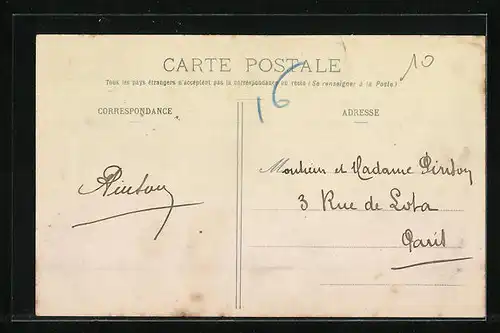 CARTE POSTALE
Tous les pays étrangers n'acceptent pas la correspondance au recto (Se renseigner à la Poste)
10
16
CORRESPONDANCE
ADRESSE
Pinton
Monsieur et Madame Pinton
3 Rue de Lota
Paris